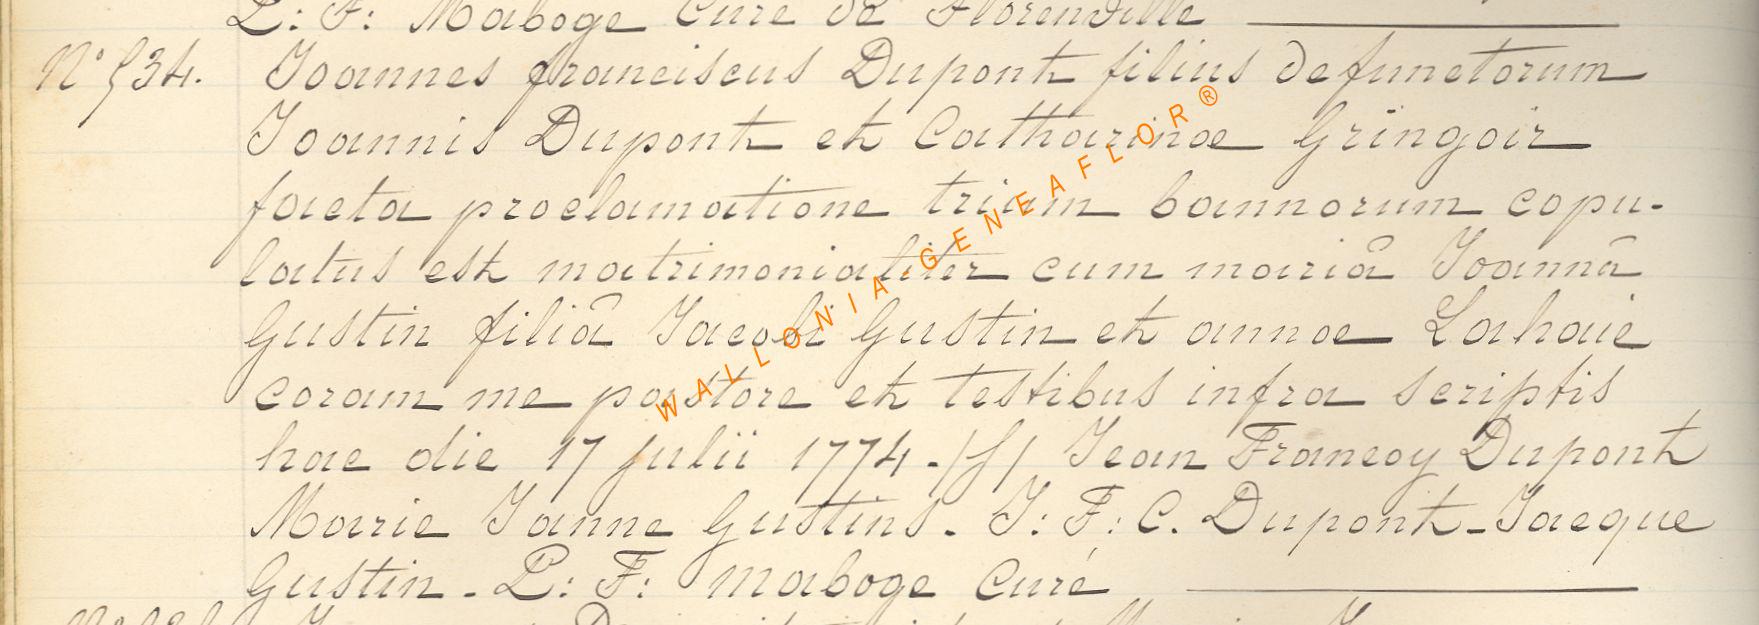 L: F: Maboge Curé de Florenville
N° 534. Joannes franciscus Dupont filius defunctorum
Joannis Dupont et Catharinae Gringoir
facta proclamatione trium bannorum copu-
latus est matrimonialiter cum mariâ Joannâ
Gustin filiâ Jacobi Gustin et annae Lahaie
coram me pastore et testibus infra scriptis
hac die 17 julii 1774. /s/ Jean Francoy Dupont
Marie Janne Gustins. J: F: C. Dupont - Jacque
Gustin - L: F: maboge Curé
WALLONIA GENEAFLOR®